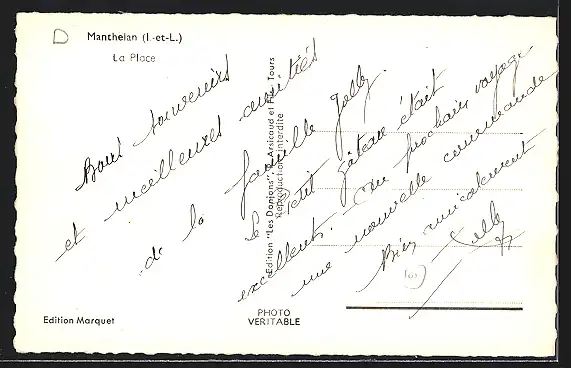 D
Manthelan (I.-et-L.)
La Place
Bons souvenirs
et meilleures amitiés
de la famille Jolly.
le petit gâteau était
excellent. Au prochain voyage
une nouvelle commande
Bien amicalement
Jolly
Edition "Les Donjons", Arsicaud et Fils Tours
Reproduction interdite
Edition Marquet
PHOTO
VERITABLE